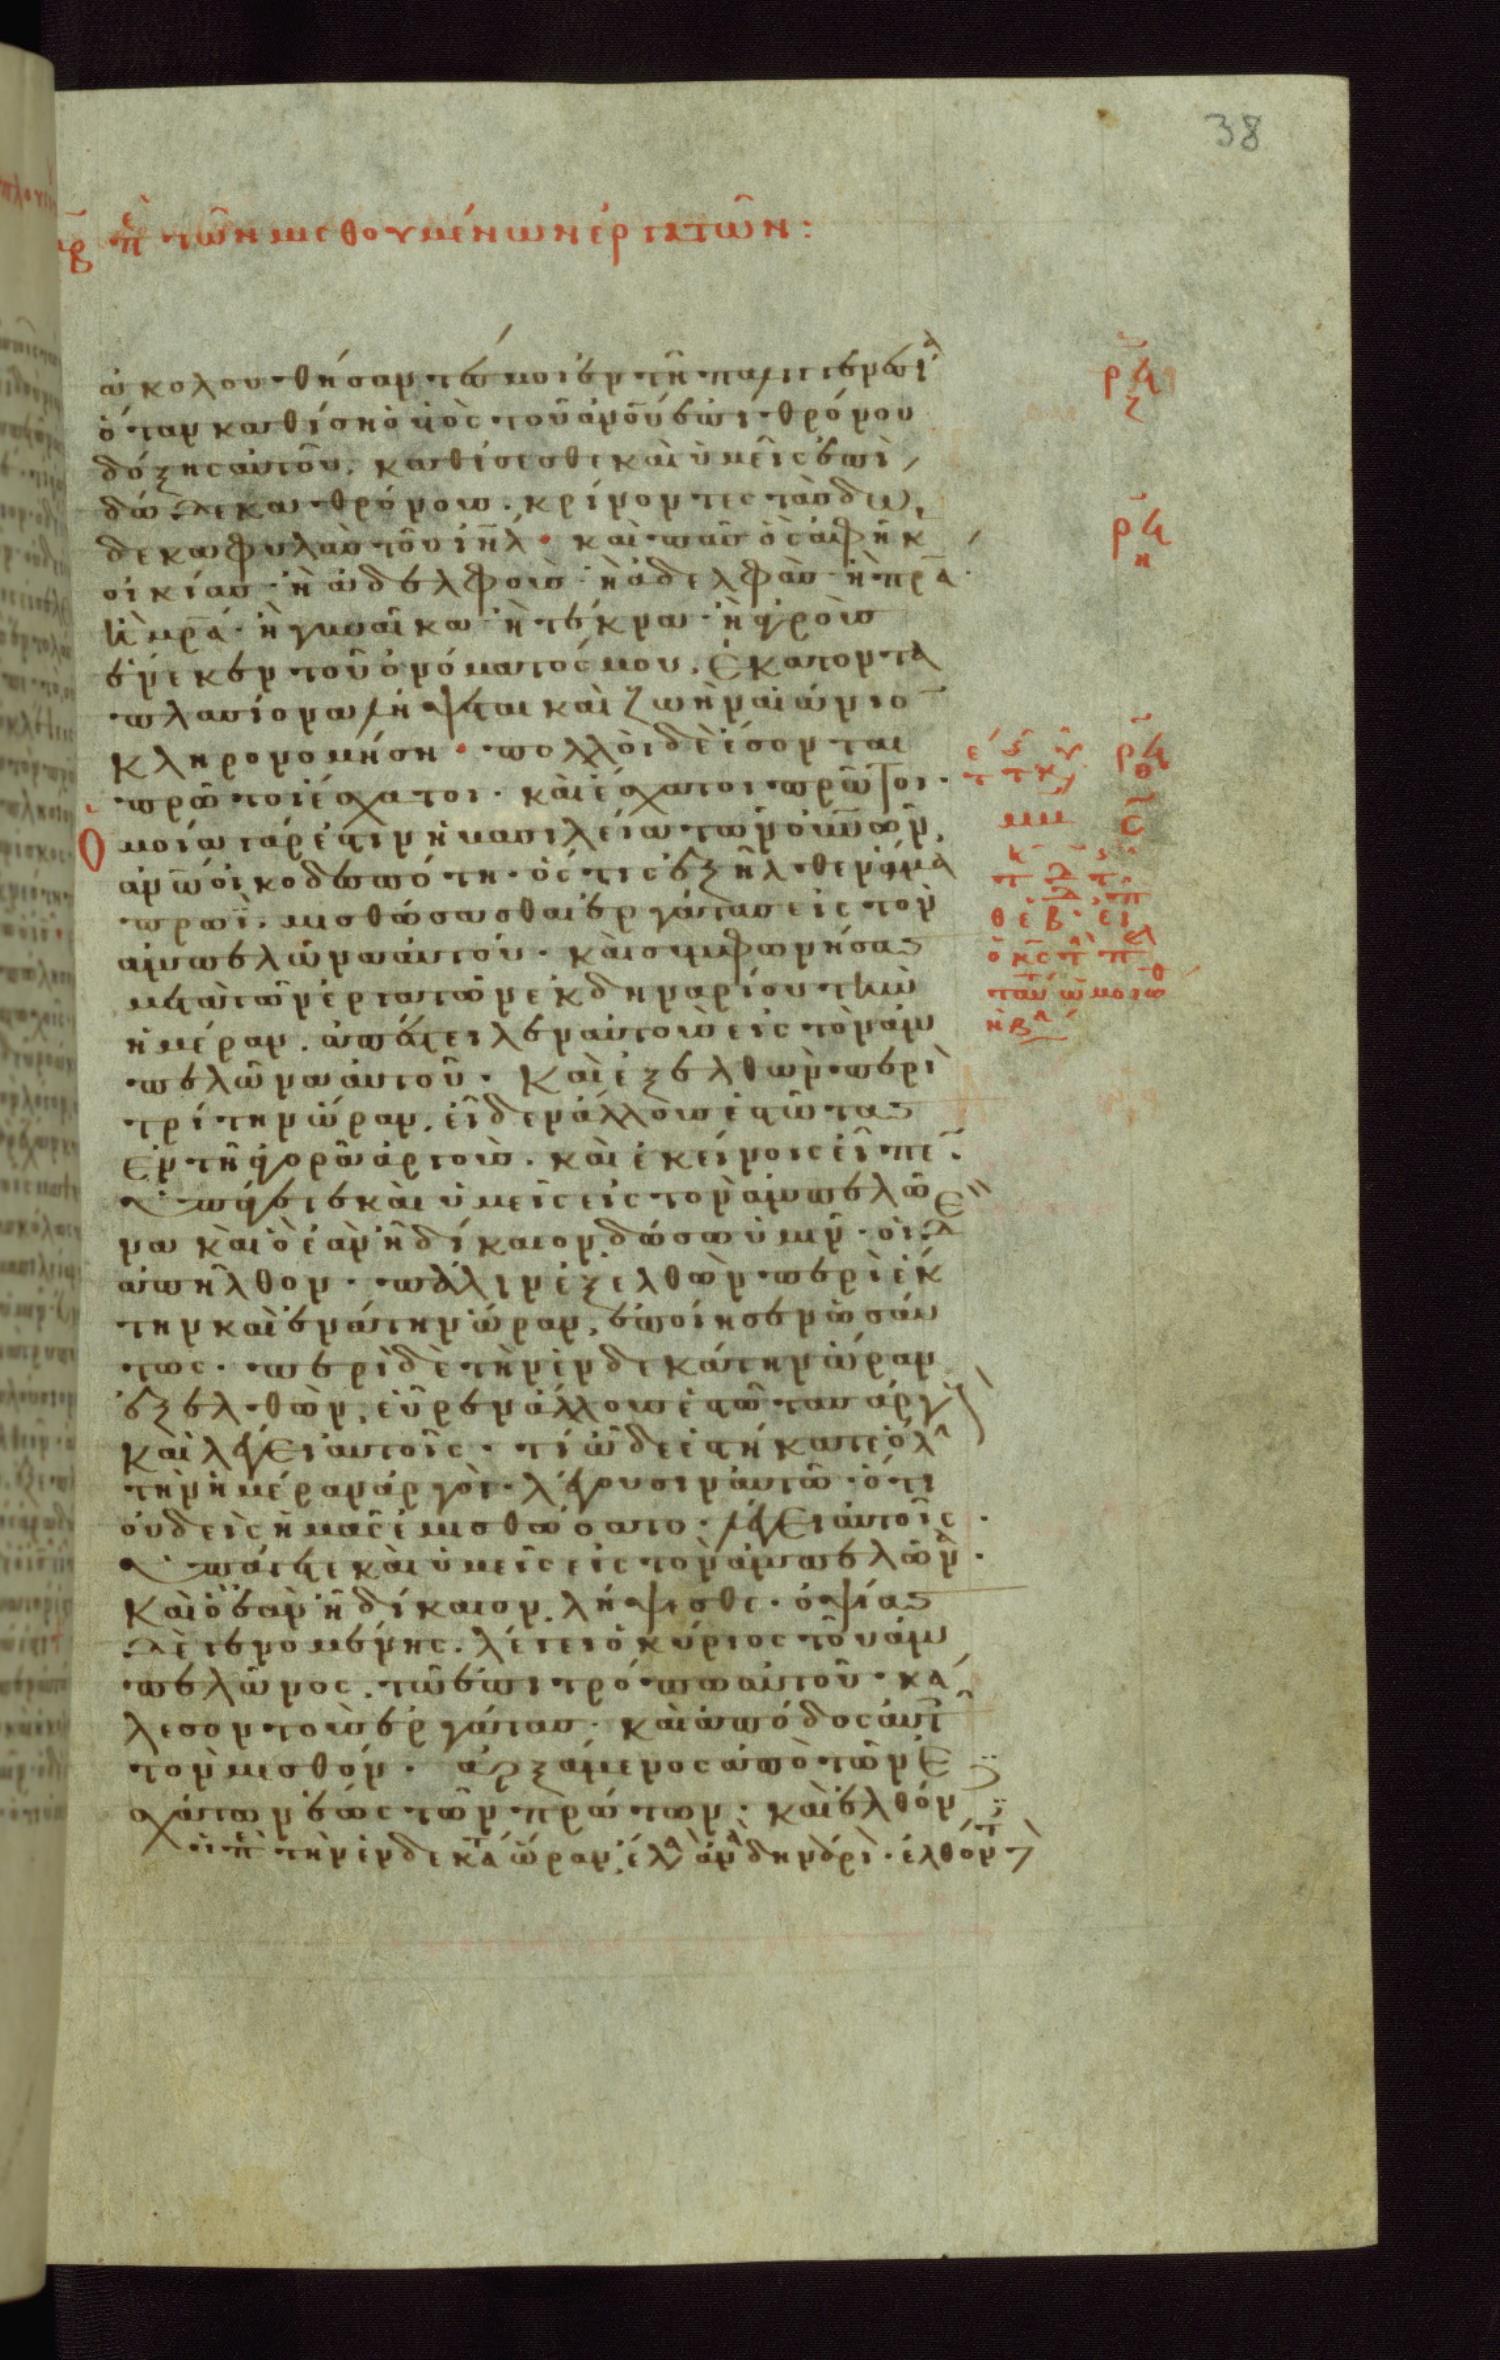 38
περὶ τῶν μισθουμένων ἐργατῶν:
ἀκολουθήσαντές μοι ἐν τῆ παλιγγενεσίᾳ
ὅταν καθίση ὁ υἱὸς τοῦ ἀνοῦ ἐπὶ θρόνου
δόξης αὐτοῦ, καθίσεσθε καὶ ὑμεῖς ἐπὶ
δώδεκα θρόνους. κρίνοντες τὰς δώ
δεκα φυλὰς τοῦ ιηλ· καὶ πᾶς ὃς ἀφῆκ
οἰκίας· ἢ ἀδελφοὺς· ἢ ἀδελφὰς· ἢ πρα·
ἢ μρα· ἢ γυναῖκα· ἢ τέκνα· ἢ ἀγροὺς
ἕνεκεν τοῦ ὀνόματός μου, ἑκατοντα
πλασίονα λήψεται καὶ ζωὴν αἰώνιο
κληρονομήση· πολλοὶ δὲ ἔσονται
πρῶτοι ἔσχατοι· καὶ ἔσχατοι πρῶτοι·
Ὁμοία γάρ ἐστιν ἡ βασιλεία τῶν οὐνῶν,
ἀνω οἰκοδεσπότη· ὅστις ἐξῆλθεν ἅμα
πρωῒ, μισθώσασθαι ἐργάτας εἰς τὸν
ἀμπελῶνα αὐτοῦ· καὶ συμφωνήσας
μετὰ τῶν ἐργατῶν ἐκ δηναρίου τὴν
ἡμέραν, ἀπέστειλεν αὐτοὺς εἰς τὸν ἀμ
πελῶνα αὐτοῦ· Καὶ ἐξελθὼν περὶ
τρίτην ὥραν, εἶδεν ἄλλους ἑστῶτας
ἐν τῆ ἀγορᾶ ἀργοὺς· καὶ ἐκείνοις εἶπε·
ὑπάγετε καὶ ὑμεῖς εἰς τὸν ἀμπελῶ
να καὶ ὃ ἐὰν ἦ δίκαιον δώσω ὑμῖν· οἱ δὲ
ἀπῆλθον· πάλιν ἐξελθὼν περὶ ἕκ
την καὶ ἐνάτην ὥραν, ἐποίησεν ὡσαύ
τως· περὶ δὲ τὴν ἑνδεκάτην ὥραν
ἐξελθὼν, εὗρεν ἄλλους ἑστῶτας ἀργοὺς
καὶ λέγει αὐτοῖς· τί ὧδε ἑστήκατε ὅλην
τὴν ἡμέραν ἀργοὶ· λέγουσιν αὐτῶ· ὅτι
οὐδεὶς ἡμᾶς ἐμισθώσατο· λέγει αὐτοῖς·
ὑπάγετε καὶ ὑμεῖς εἰς τὸν ἀμπελῶνα·
καὶ ὃ ἐὰν ἦ δίκαιον, λήψεσθε· ὀψίας
δὲ γενομένης, λέγει ὁ κύριος τοῦ ἀμ
πελῶνος, τῶ ἐπιτρόπω αὐτοῦ· κά
λεσον τοὺς ἐργάτας· καὶ ἀπόδος αὐτοῖς
τὸν μισθόν· ἀρξάμενος ἀπὸ τῶν ἐ
σχάτων ἕως τῶν πρώτων· καὶ ἐλθόν
οἱ περὶ τὴν ἑνδεκάτην ὥραν, ἔλαβον ἀνὰ δηνάριον· ἐλθόντ